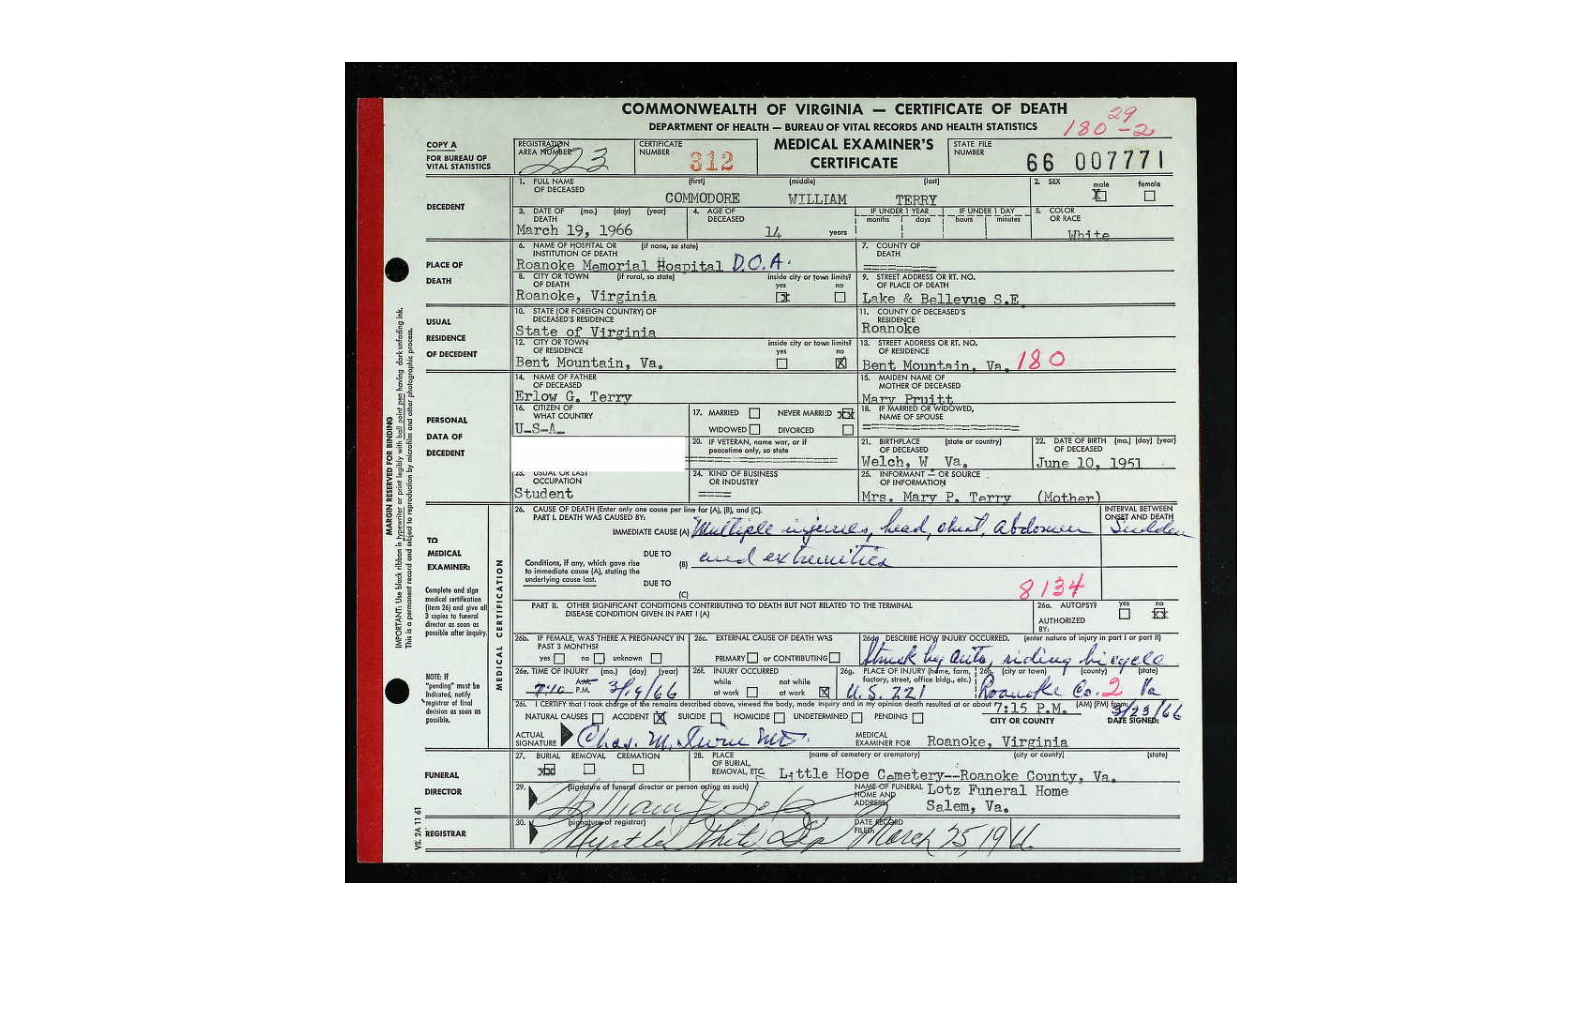 COMMONWEALTH OF VIRGINIA — CERTIFICATE OF DEATH
DEPARTMENT OF HEALTH — BUREAU OF VITAL RECORDS AND HEALTH STATISTICS
29
180 -2
COPY A
FOR BUREAU OF VITAL STATISTICS
REGISTRATION AREA NUMBER 223
CERTIFICATE NUMBER 312
MEDICAL EXAMINER'S CERTIFICATE
STATE FILE NUMBER 66 007771
DECEDENT
1. FULL NAME OF DECEASED (first) (middle) (last)
COMMODORE WILLIAM TERRY
2. SEX male X female
3. DATE OF DEATH (mo.) (day) (year)
March 19, 1966
4. AGE OF DECEASED 14 years
IF UNDER 1 YEAR months days
IF UNDER 1 DAY hours minutes
5. COLOR OR RACE
White
PLACE OF DEATH
6. NAME OF HOSPITAL OR INSTITUTION OF DEATH (if none, so state)
Roanoke Memorial Hospital D.O.A.
7. COUNTY OF DEATH
=========
8. CITY OR TOWN OF DEATH (if rural, so state)
Roanoke, Virginia
inside city or town limits? yes x no
9. STREET ADDRESS OR RT. NO. OF PLACE OF DEATH
Lake & Bellevue S.E.
USUAL RESIDENCE OF DECEDENT
10. STATE (OR FOREIGN COUNTRY) OF DECEASED'S RESIDENCE
State of Virginia
11. COUNTY OF DECEASED'S RESIDENCE
Roanoke
12. CITY OR TOWN OF RESIDENCE
Bent Mountain, Va.
inside city or town limits? yes no X
13. STREET ADDRESS OR RT. NO. OF RESIDENCE
Bent Mountain, Va. 180
PERSONAL DATA OF DECEDENT
14. NAME OF FATHER OF DECEASED
Erlow G. Terry
15. MAIDEN NAME OF MOTHER OF DECEASED
Mary Pruitt
16. CITIZEN OF WHAT COUNTRY
U-S-A-
17. MARRIED NEVER MARRIED XX
WIDOWED DIVORCED
18. IF MARRIED OR WIDOWED, NAME OF SPOUSE
====================
20. IF VETERAN, name war, or if peacetime only, so state
================
21. BIRTHPLACE OF DECEASED (state or country)
Welch, W Va.
22. DATE OF BIRTH OF DECEASED (mo.) (day) (year)
June 10, 1951
23. USUAL OR LAST OCCUPATION
Student
24. KIND OF BUSINESS OR INDUSTRY
====
25. INFORMANT — OR SOURCE OF INFORMATION
Mrs. Mary P. Terry (Mother)
MARGIN RESERVED FOR BINDING
IMPORTANT: Use black ribbon in typewriter or print legibly with ball point pen having dark unfading ink.
This is a permanent record and subject to reproduction by microfilm and other photographic process.
TO MEDICAL EXAMINER:
Complete and sign medical certification (item 26) and give all 3 copies to funeral director as soon as possible after inquiry.
NOTE: If "pending" must be indicated, notify registrar of final decision as soon as possible.
MEDICAL CERTIFICATION
26. CAUSE OF DEATH (Enter only one cause per line for (A), (B), and (C).
PART I. DEATH WAS CAUSED BY:
INTERVAL BETWEEN ONSET AND DEATH
IMMEDIATE CAUSE (A) Multiple injuries, head, chest, abdomen Sudden
Conditions, if any, which gave rise to immediate cause (A), stating the underlying cause last.
DUE TO (B) and extremities
DUE TO (C)
8134
PART II. OTHER SIGNIFICANT CONDITIONS CONTRIBUTING TO DEATH BUT NOT RELATED TO THE TERMINAL DISEASE CONDITION GIVEN IN PART I (A)
26a. AUTOPSY? yes no XX
AUTHORIZED BY:
26b. IF FEMALE, WAS THERE A PREGNANCY IN PAST 3 MONTHS?
yes no unknown
26c. EXTERNAL CAUSE OF DEATH WAS
PRIMARY or CONTRIBUTING
26d. DESCRIBE HOW INJURY OCCURRED. (enter nature of injury in part I or part II)
Struck by auto, riding bicycle
26e. TIME OF INJURY (mo.) (day) (year)
7:10 A.M. P.M. 3/19/66
26f. INJURY OCCURRED
while at work not while at work X
26g. PLACE OF INJURY (home, farm, factory, street, office bldg., etc.)
U.S. 221
26h. (city or town) (county) (state)
Roanoke Co. 2 Va
26i. I CERTIFY that I took charge of the remains described above, viewed the body, made inquiry and in my opinion death resulted at or about 7:15 P.M. (AM) (PM) from:
NATURAL CAUSES ACCIDENT X SUICIDE HOMICIDE UNDETERMINED PENDING
CITY OR COUNTY
3/23/66
DATE SIGNED:
ACTUAL SIGNATURE Chas. M. MD
MEDICAL EXAMINER FOR Roanoke, Virginia
FUNERAL DIRECTOR
27. BURIAL XXX REMOVAL CREMATION
28. PLACE OF BURIAL, REMOVAL, ETC. (name of cemetery or crematory) (city or county) (state)
Little Hope Cemetery--Roanoke County, Va.
29. (signature of funeral director or person acting as such)
William
NAME OF FUNERAL HOME AND ADDRESS Lotz Funeral Home
Salem, Va.
REGISTRAR
30. (signature of registrar)
Myrtle White, Dep
DATE RECORD FILED: March 25, 1966
VS. 2A 11 61